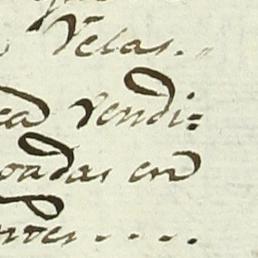 Velas..
ca Vendi=
oadas en
ntes....